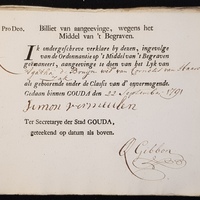 Pro Deo.
Billiet van aangeevinge, wegens het
Middel van 't Begraven.
Ik ondergeschreve verklare by dezen, ingevolge
van de Ordonnantie op 't Middel van 't Begraven
geëmaneert, aangeevinge te doen van het Lyk van
de Bruijn wed van Cornelis van
als gehoorende onder de Classis van d' onvermogende.
Gedaan binnen GOUDA den 22 September 1791
Simon vermeulen
Ter Secretarye der Stad GOUDA,
geteekend op datum als boven.